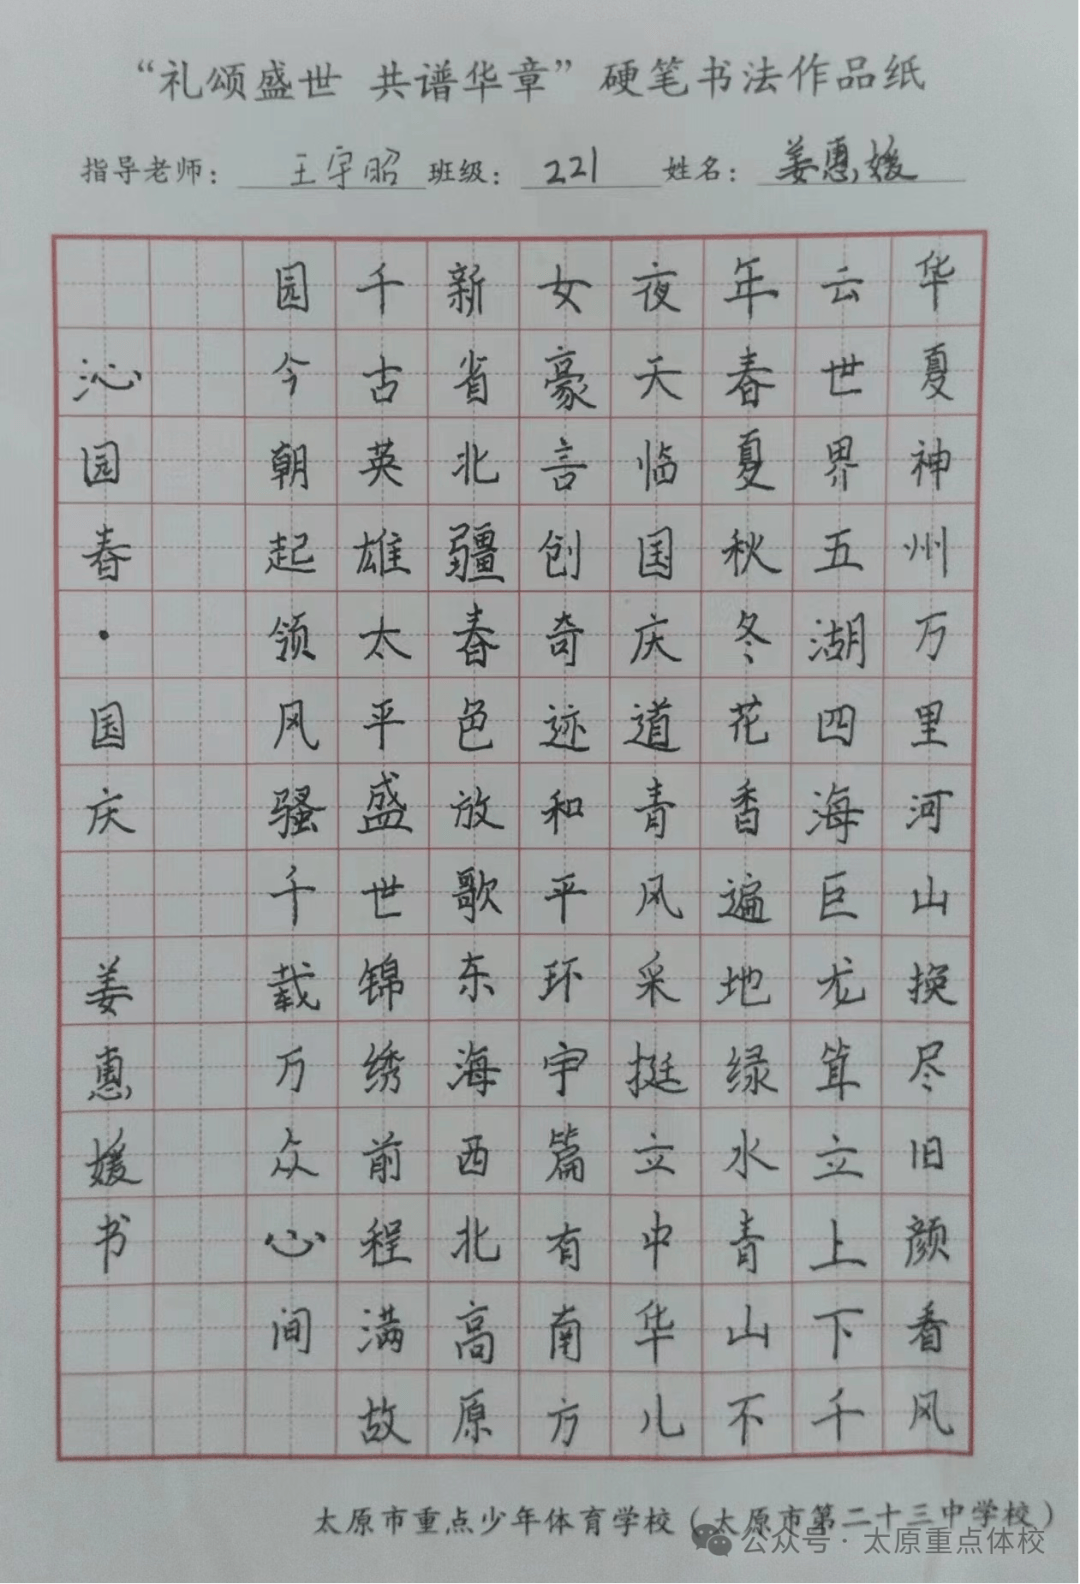 “礼颂盛世 共谱华章”硬笔书法作品纸
指导老师：王宇昭 班级：221 姓名：姜惠媛
华夏神州万里河山换尽旧颜看风
云世界五湖四海巨龙耸立上下千
年春夏秋冬花香遍地绿水青山不
夜天临国庆道青风采挺立中华儿
女豪言创奇迹和平环宇篇有南方
新省北疆春色放歌东海西北高原
千古英雄太平盛世锦绣前程满故
园今朝起领风骚千载万众心间
沁园春·国庆 姜惠媛书
太原市重点少年体育学校（太原市第二十三中学校）
公众号·太原重点体校